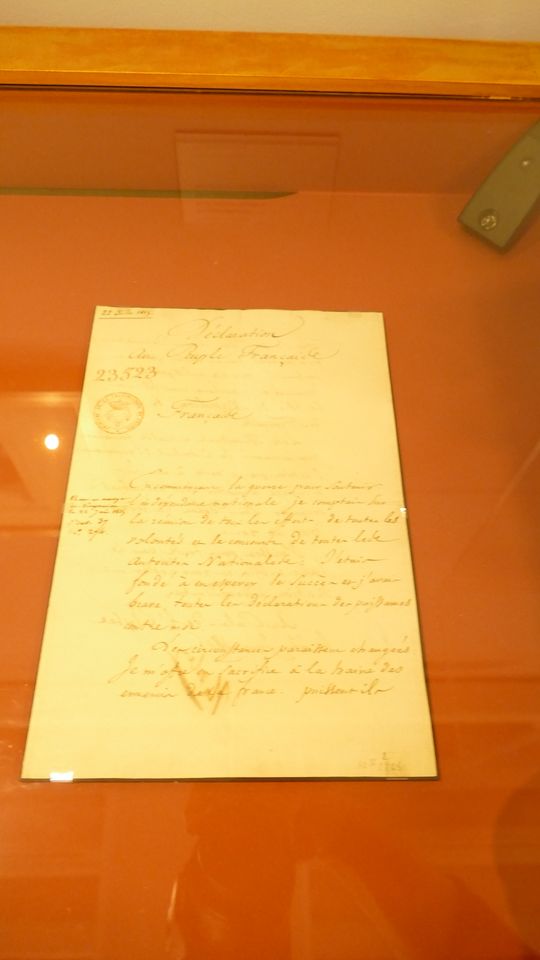 22 Juin 1815
Déclaration
Au Peuple Française
23523
Française
En commençant la guerre pour Soutenir
l'indépendance nationale je comptais Sur
la réunion de tous les efforts de toutes les
volontés et le concours de toutes les
autorités Nationales: J'étais
fondé à en espérer le Succès et j'avais
bravé toutes les déclarations des puissances
contre moi
Les circonstances paraissent changées
Je m'offre en Sacrifice à la haine des
ennemis de la france. puissent ils